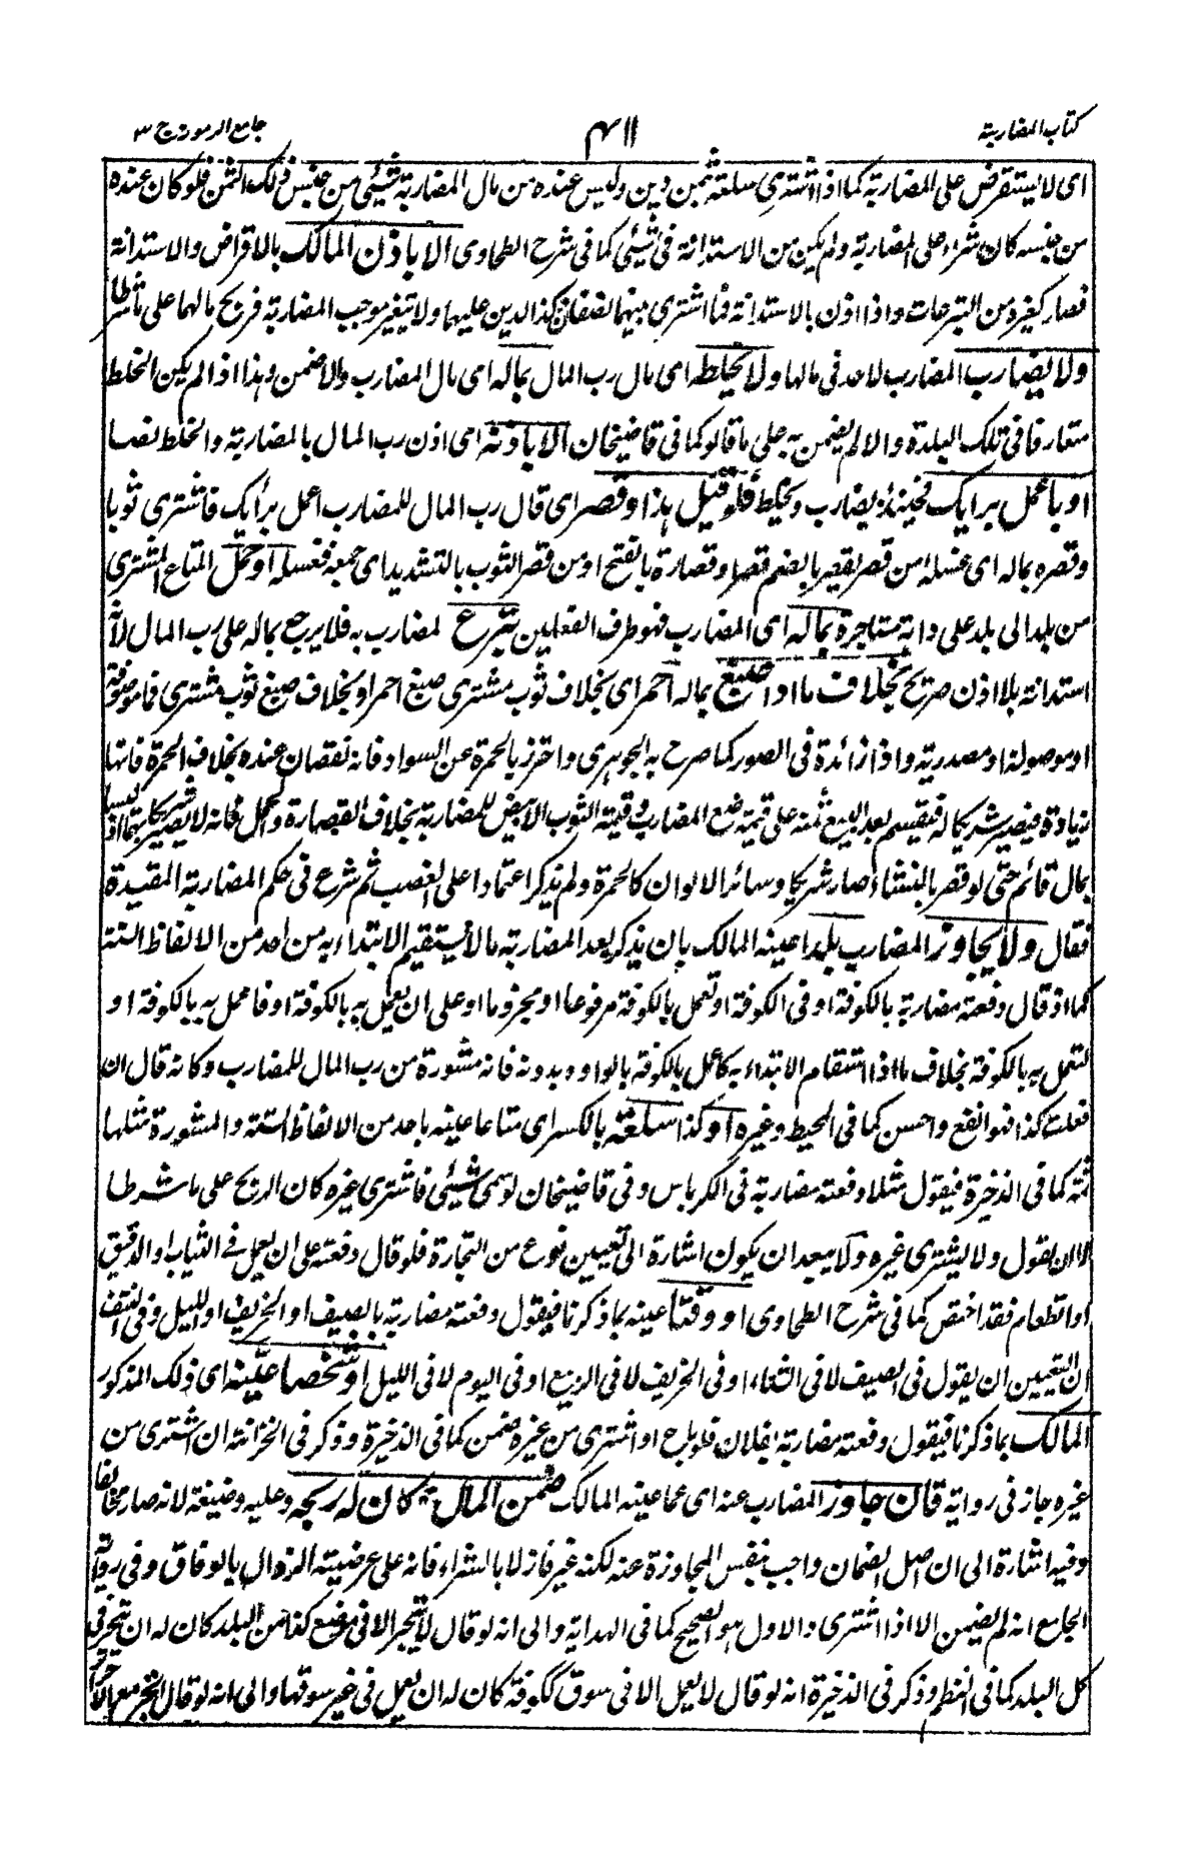 كتاب المضاربة
۴۱۱
جامع الرموز ج ۳
اى لا يستقرض على المضاربة كما اذا اشترى سلعة بثمن دين وليس عنده من مال المضاربة شيئ من جنس ذلك الثمن فلو كان عنده
من جنسه كان شراء على المضاربة ولم يكن من الاستدانة فى شيئ كما فى شرح الطحاوى الا باذن المالك بالاقراض والاستدانة
فصار كغيره من التبرعات واذا اذن بالاستدانة فما اشترى بينهما نصفان وكذا الدين عليهما ولا يتغير موجب المضاربة فربح مالهما على ما شرطا
ولا يضارب المضارب لاحد فى مالها ولا يخلطه اى مال رب المال بماله اى مال المضارب والا ضمن وهذا اذا لم يكن الخلط
متعارفا فى تلك البلدة والا لم يضمن به على ما قالو كما فى قاضيخان الا باذنه اى اذن رب المال بالمضاربة والخلط نصا
او باعمل برأيك فحينئذ يضارب ويخلط فلو قيل هذا وقصر اى قال رب المال للمضارب اعمل برأيك فاشترى ثوبا
وقصره بماله اى غسله من قصر يقصر بالضم قصرا وقصارة بالفتح او من قصر الثوب بالتشديد اى جمعه فغسله او حمل المتاع المشترى
من بلد الى بلد على دابة مستاجرة بماله اى المضارب فهو ظرف الفعلين تبرع لمضارب به فلا يرجع بماله على رب المال لانه
استدانة بلا اذن صريح بخلاف ما اذا صبغ بماله احمر اى بخلاف ثوب مشترى صبغ احمر او بخلاف صبغ ثوب مشترى فما موصوفة
او موصولة او مصدرية واذا زائدة فى الصور كما صرح به الجوهرى واحترز بالحمرة عن السواد فانه نقصان عنده بخلاف الحمرة فانها
زيادة فيصير شريكا له فيقسم بعد البيع ثمنه على قيمته صبغ المضارب وقيمة الثوب الابيض للمضاربة بخلاف القصارة والحمل فانه لا يصير شريكا بهما اذ ليسا
بمال قائم حتى لو قصر بالنشاء صار شريكا وسائر الالوان كالحمرة ولم يذكر اعتمادا على الغصب ثم شرع فى حكم المضاربة المقيدة
فقال ولا يجاوز المضارب بلدا عينه المالك بان يذكر بعد المضاربة ما لا يستقيم الابتداء به من احد من الالفاظ الستة
كما اذ قال دفعته مضاربة بالكوفة او فى الكوفة او تعمل بالكوفة مرفوعا او مجزوما او على ان يعمل به بالكوفة او فاعمل به بالكوفة او
لتعمل به بالكوفة بخلاف ما اذا استقام الابتداء به كاعمل بالكوفة بالواو وبدونه فانه مشورة من رب المال للمضارب وكانه قال ان
فعلت كذا فهو انفع واحسن كما فى المحيط وغيره او كذا سلعة بالكسر اى متاعا عينه باحد من الالفاظ الستة والمشورة مثلها
ثمه كما فى الذخيرة فيقول مثلا دفعته مضاربة فى الكرباس وفى قاضيخان لو سمى شيئ فاشترى غيره كان الربح على ما شرطا
الا ان يقول ولا ليشترى غيره ولا يبعد ان يكون اشارة الى تعيين نوع من التجارة فلو قال دفعته على ان يعمل فى الثياب او الدقيق
او الطعام فقد اختص كما فى شرح الطحاوى او وقتا عينه بما ذكرنا فيقول دفعته مضاربة بالصيف او الخريف او الليل وفى النتف
ان التعيين ان يقول فى الصيف لا فى الشتاء او فى الخريف لا فى الربيع او فى اليوم لا فى الليل او شخصا عينه اى ذلك المذكور
المالك بما ذكرنا فيقول دفعته مضاربة بفلان فلو باع او اشترى من غيره ضمن كما فى الذخيرة وذكر فى الخزانة ان اشترى من
غيره جاز فى رواية فان جاوز المضارب عنه اى عما عينه المالك ضمن المال و كان له ربحه وعليه وضيعته لانه صار مخالفا
وفيه اشارة الى ان اصل الضمان واجب بنفس المجاوزة عنه لكنه غير فاز لا بالشراء فانه على عرضية الزوال بالوفاق وفى رواية
الجامع انه لم يضمن الا اذا اشترى والاول هو الصحيح كما فى الهداية والى انه لو قال لا يتجر الا فى موضع كذا من البلد كان له ان يتجر فى
كل البلد كما فى النظم وذكر فى الذخيرة انه لو قال لا يعمل الا فى سوق ككوفة كان له ان يعمل فى غير سوقها والى انه لو قال اتجر مع